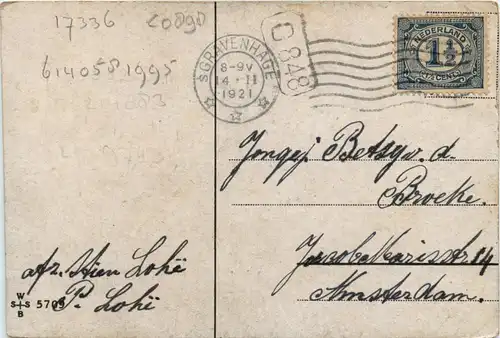 17336 20890
614058 1995
'SGRAVENHAGE
8-9V
14·II
1921
C 848
NEDERLAND
1½
CENT
Jongej Betsy v. d.
Broeke.
Jacob Marisstr 14
Amsterdam.
afz. Stien Lohë
P. Lohë
W
S S 570
B